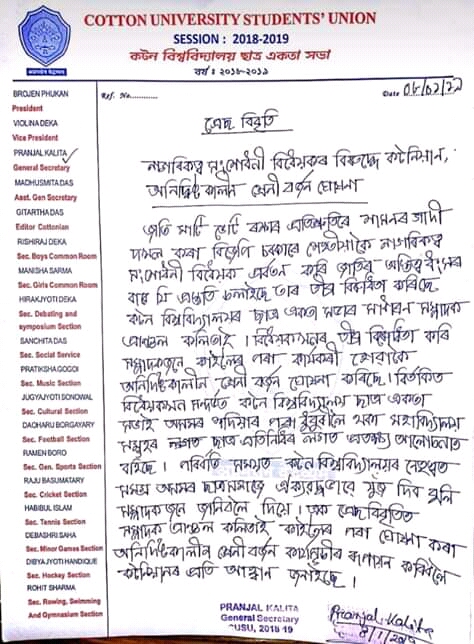 COTTON UNIVERSITY STUDENTS' UNION
SESSION : 2018-2019
কটন বিশ্ববিদ্যালয় ছাত্ৰ একতা সভা
বৰ্ষ : ২০১৮-২০১৯
BROJEN PHUKAN
President
VIOLINA DEKA
Vice President
PRANJAL KALITA
General Secretary
MADHUSMITA DAS
Asst. Gen Secretary
GITARTHA DAS
Editor Cottonian
RISHIRAJ DEKA
Sec. Boys Common Room
MANISHA SARMA
Sec. Girls Common Room
HIRAKJYOTI DEKA
Sec. Debating and
symposium Section
SANCHITA DAS
Sec. Social Service
PRATIKSHA GOGOI
Sec. Music Section
JUGYAJYOTI SONOWAL
Sec. Cultural Section
DAOHARU BORGAYARY
Sec. Football Section
RAMEN BORO
Sec. Gen. Sports Section
RAJU BASUMATARY
Sec. Cricket Section
HABIBUL ISLAM
Sec. Tennis Section
DEBASHRI SAHA
Sec. Minor Games Section
DIBYAJYOTI HANDIQUE
Sec. Hockey Section
ROHIT SHARMA
Sec. Rowing, Swimming
And Gymnasium Section
Ref. No.
Date
প্ৰেছ বিবৃতি
নাগৰিকত্ব সংশোধনী বিধেয়কৰ বিৰুদ্ধে কটনিয়ান,
অনিৰ্দিষ্টকালীন শ্ৰেণী বৰ্জন ঘোষণা
জাতি মাটি ভেটি ৰক্ষাৰ প্ৰতিশ্ৰুতিৰে শাসনৰ গাদী
দখল কৰা বিজেপি চৰকাৰে নাগৰিকত্ব
সংশোধনী বিধেয়ক কৰি জাতিৰ অস্তিত্ব ধ্বংসৰ
বাবে যি প্ৰস্তুতি চলাইছে তাৰ তীব্ৰ বিৰোধিতা কৰিছে
কটন বিশ্ববিদ্যালয়ৰ ছাত্ৰ একতা সভাৰ সাধাৰণ সম্পাদক
প্ৰাঞ্জল কলিতাই । বিধেয়কখনৰ তীব্ৰ বিৰোধিতা কৰি
সম্পাদকজনে কাইলৈৰ পৰা কাৰ্যকৰী হোৱাকৈ
অনিৰ্দিষ্টকালীন শ্ৰেণী বৰ্জন ঘোষণা কৰিছে । বিতৰ্কিত
বিধেয়কখন সন্দৰ্ভত কটন বিশ্ববিদ্যালয় ছাত্ৰ একতা
সভাই অসমৰ শদিয়াৰ পৰা ধুবুৰীলৈ থকা মহাবিদ্যালয়
সমূহৰ লগত ছাত্ৰ প্ৰতিনিধিৰ লগত আলোচনাত
বহিছে । পৰিবৰ্তি সময়ত কটন বিশ্ববিদ্যালয়ৰ নেতৃত্বত
সমগ্ৰ অসমৰ ছাত্ৰসমাজে ঐক্যবদ্ধভাবে যুঁজ দিব বুলি
সম্পাদকজনে জানিবলৈ দিয়ে । এক প্ৰেছ বিবৃতিত
সম্পাদক প্ৰাঞ্জল কলিতাই কাইলৈৰ পৰা ঘোষণা কৰা
অনিৰ্দিষ্টকালীন শ্ৰেণী বৰ্জন কাৰ্যসূচীৰ ৰূপায়ন কৰিবলৈ
কটনিয়ানৰ প্ৰতি আহ্বান জনাইছে ।
PRANJAL KALITA
General Secretary
CUSU, 2018-19
Pranjal Kalita